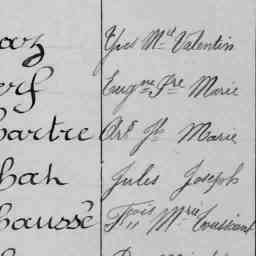 az Yves M^el Valentin
erf Eug^ne F^re Marie
hartre Marie
hah Jules Joseph
haussé F^ois M^rie Toussaint